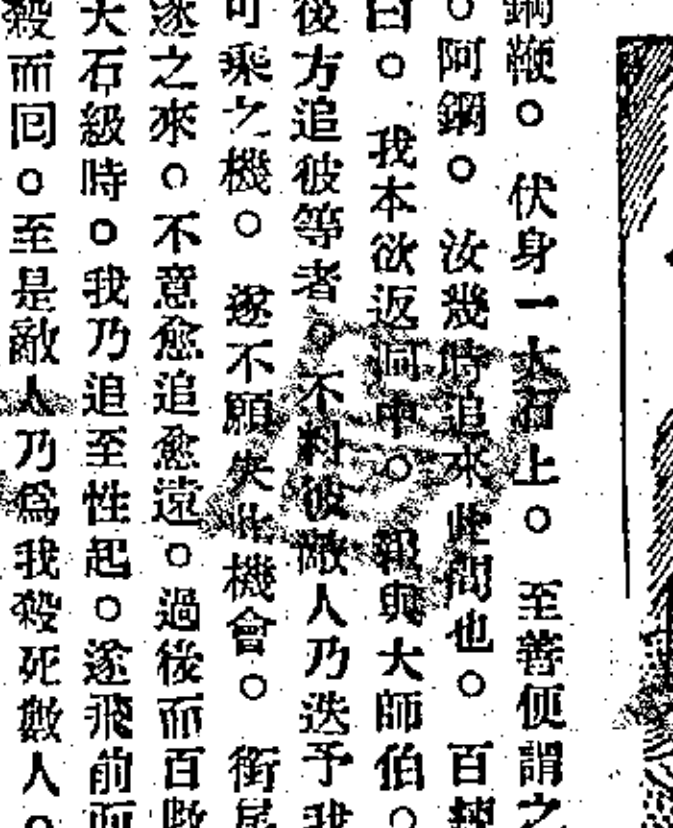 鋼鞭。伏身一大石上。至善便謂之
。阿鋼。汝幾時追來此間也。百
曰。我本欲返同中。報與大師伯。
後方追彼等者。不料彼敵人乃迭予我
可乘之機。遂不願失此機會。銜尾
遂之來。不意愈追愈遠。過後而百數
大石級時。我乃追至性起。遂飛前而
殺而回。至是敵人乃爲我殺死數人。